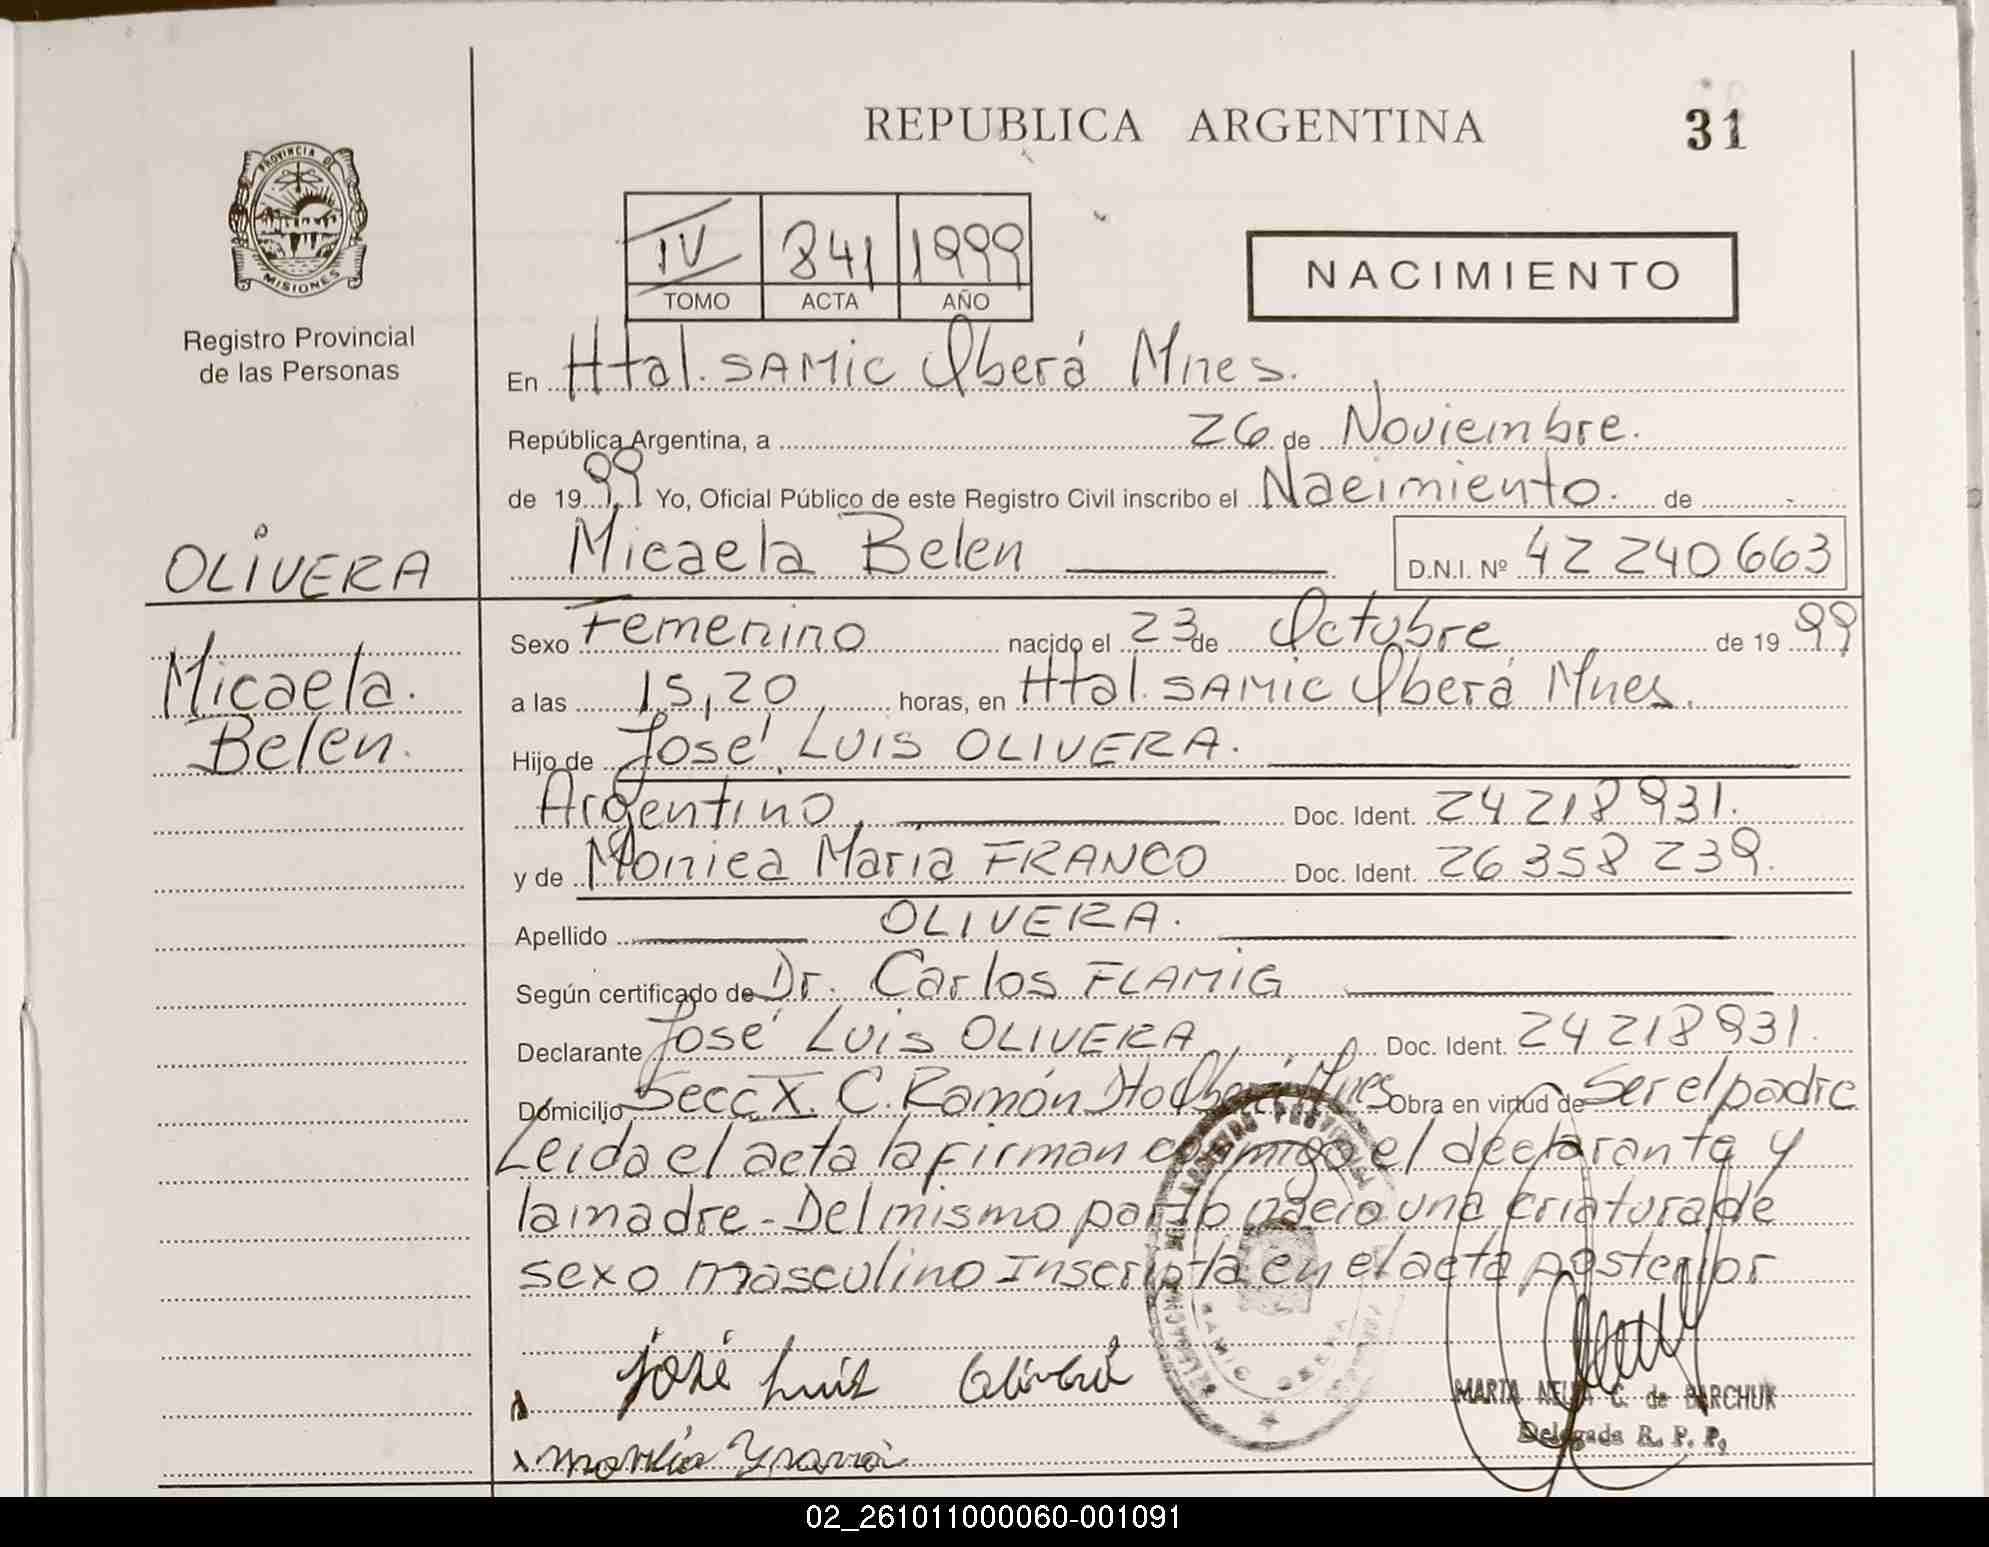 REPUBLICA ARGENTINA
31
PROVINCIA DE
MISIONES
Registro Provincial
de las Personas
IV 841 1999
TOMO ACTA AÑO
NACIMIENTO
En Htal. SAMIC Oberá Mnes.
República Argentina, a 26 de Noviembre.
de 1999 Yo, Oficial Público de este Registro Civil inscribo el Nacimiento. de
OLIVERA
Micaela Belen D.N.I. Nº 42 240 663
Micaela.
Belen.
Sexo Femenino nacido el 23 de Octubre de 1999
a las 15,20 horas, en Htal. SAMIC Oberá Mnes.
Hijo de José LUIS OLIVERA.
Argentino Doc. Ident. 24 218 931.
y de Monica Maria FRANCO Doc. Ident. 26 358 239.
Apellido OLIVERA.
Según certificado de Dr. Carlos FLAMIG
Declarante José LUIS OLIVERA Doc. Ident. 24 218 931.
Domicilio Secc X. C. Ramón Oberá Mnes Obra en virtud de Ser el padre
Leida el acta la firman conmigo el declarante y
la madre - Del mismo parto nacio una criatura de
sexo masculino Inscripta en el acta posterior
José Luis Olivera
MARTA C. de BARCHUK
Delegada R. P. P.
02_261011000060-001091